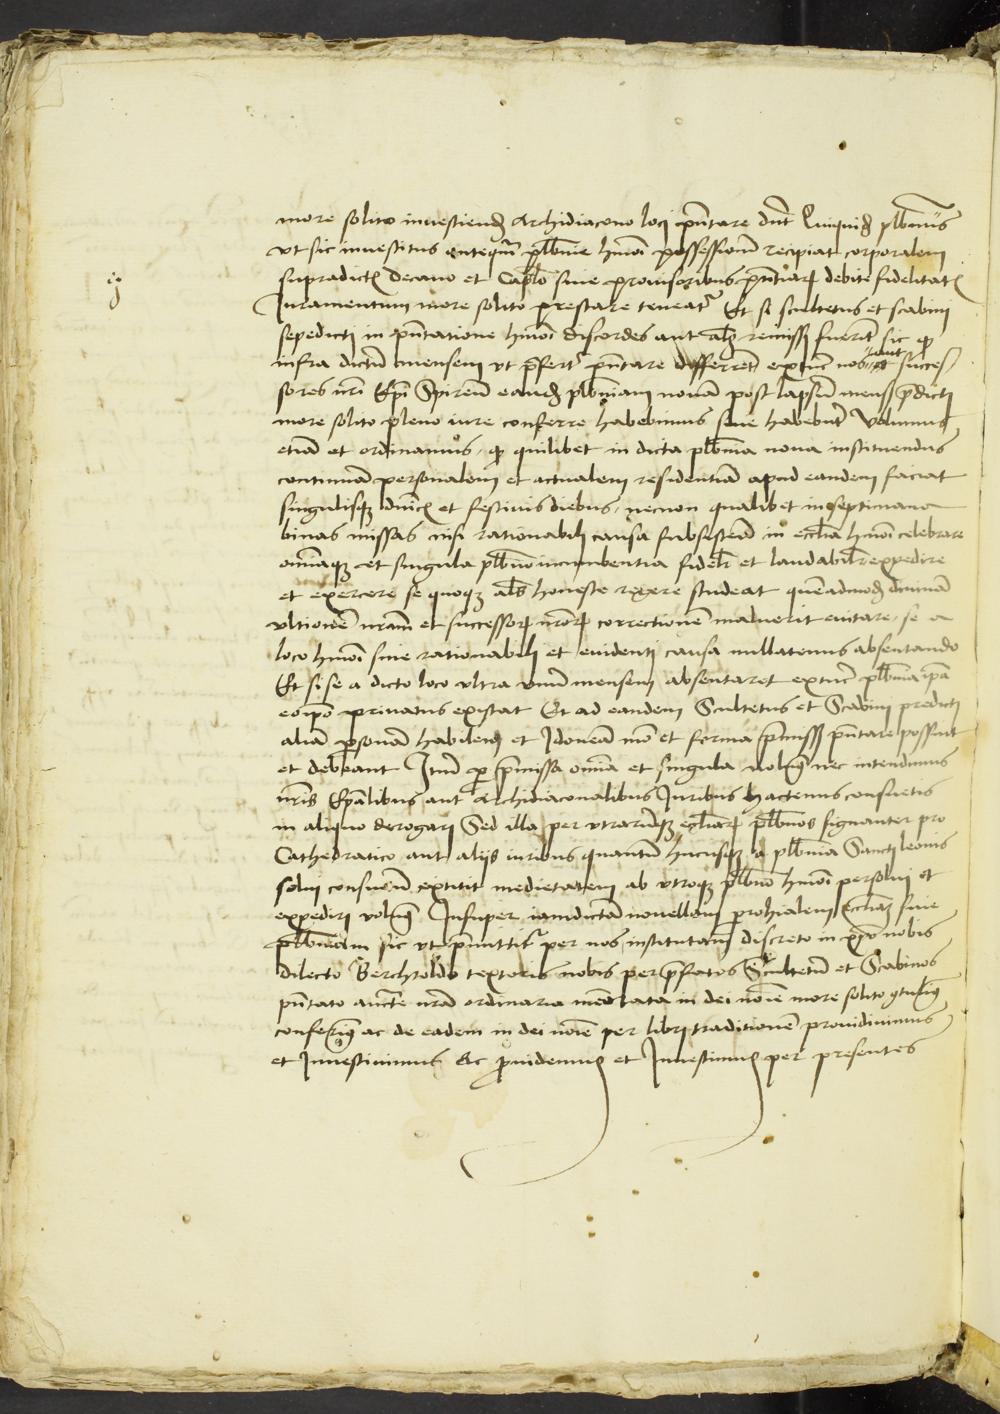 more solito inuestiend Archidiacono loci pñtare dñt Quiquid plbanus
vt sic inuestitus anteq̃m plbanie hmoi possessionem recipiat corporalem
supradict decano et Caplo siue prouisoribus debite fidelitatis
Juramentum more solito prestare teneat Et si scultetus et scabini
sepedicti in pñtatione hmoi discordes aut als remissi fuerint sic q
infra dictu mensem vt p̃fert pñtare differrent extunc nos aut succes
sores nri Epi Spireñ eand plbaniam nouam post lapsum mens p̃dicti
more solito pleno iure conferre habebimus siue habebunt Volumus
etiã et ordinamus q quilibet in dicta plbania noua instituendus
continuam personalem et actualem residentiã apud eandem faciat
singulisqz dñicis et festiuis diebus necnon qualibet in septimana
binas missas nisi rationabili causa subsistente in ecclia hmoi celebrare
omniaqz et singula plbano incumbentia fidelr et laudabilr expedire
et exercere se quoqz als honeste regere studeat quẽadmod diuinã
vltionẽ nram et successor nror correctionẽ maluerit euitare se a
loco hmoi siue rationabili et euidenti causa nullatenus absentando
Et si se a dicto loco vltra vnum mensem absentaret extunc plbania ipa
eoipo priuatus existat Et ad eandem Scultetus et Scabini predicti
aliã psonã habilem et Idoneã mo et forma p̃missis pñtare possint
et debeant Itm per p̃missa omia et singula nolum nec intendimus
nris Epalibus aut Archidiaconalibus Juribus hactenus consuetis
in aliquo derogari Sed illa per vtrarumqz eccliar plbanos signanter pro
Cathedratico aut alijs iuribus quantum hucusqz a plbania Sancti leonis
solui consuetum extitit medietatem ab vtroqz plbano hmoi persolui et
expediri volum Insuper iamdictã nouellam prohialem ecclia siue
plbaniam sic vt p̃mittitr per nos institutam discreto in xpo nobis
dilecto Berchtoldo textoris nobis per p̃fatos Scultetum et Scabinos
pñtato aucte nrã ordinaria in dei noie more solito
conferim ac de eadem in dei noie per libri traditionẽ prouidimus
et Inuestiuimus Ac prouidemus et Inuestimus per presentes